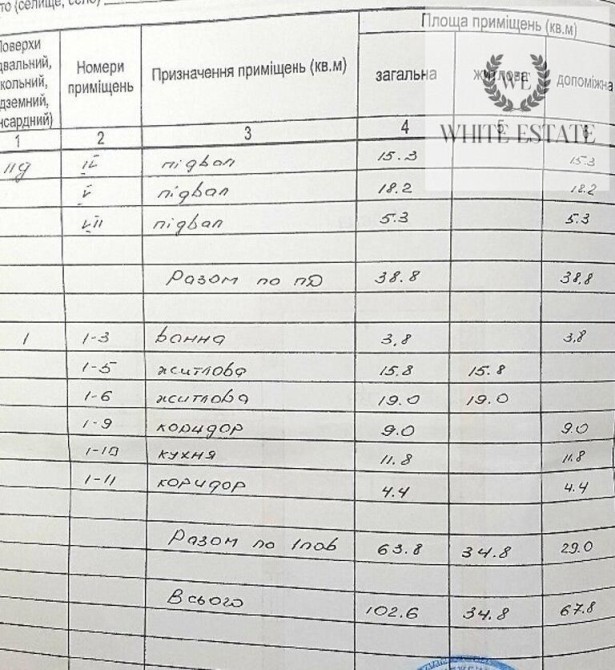 то (селище, село)
Площа приміщень (кв.м)
Поверхи
двальний,
кольний,
дземний,
нсардний)
Номери
приміщень
Призначення приміщень (кв.м)
загальна
житлова
допоміжна
WE
WHITE ESTATE
1 2 3 4 5 6
пд IV підвал 15.3 15.3
V підвал 18.2 18.2
VII підвал 5.3 5.3
Разом по пд 38.8 38.8
1 1-3 ванна 3.8 3.8
1-5 житлова 15.8 15.8
1-6 житлова 19.0 19.0
1-9 коридор 9.0 9.0
1-10 кухня 11.8 11.8
1-11 коридор 4.4 4.4
Разом по 1 пов 63.8 34.8 29.0
Всього 102.6 34.8 67.8